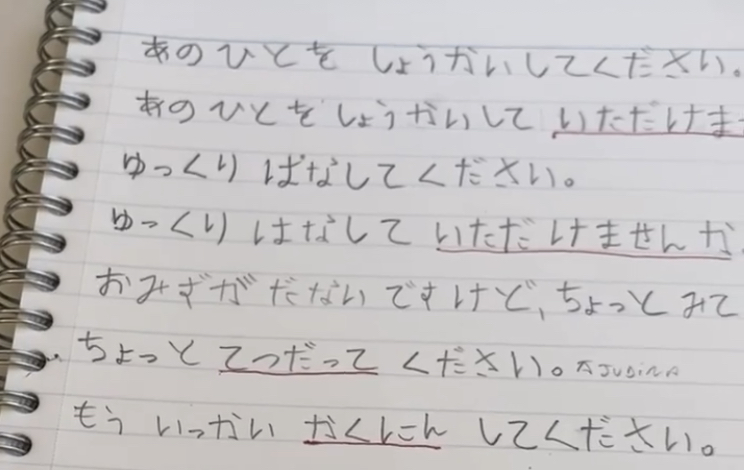 あのひとを しょうかいしてください。
あのひとを しょうかいして いただけま
ゆっくり ばなしてください。
ゆっくり はなして いただけませんか
おみずがだないですけど、ちょっと みて
ちょっと てつだって ください。AJUDINA
もう いっかい かくにん してください。